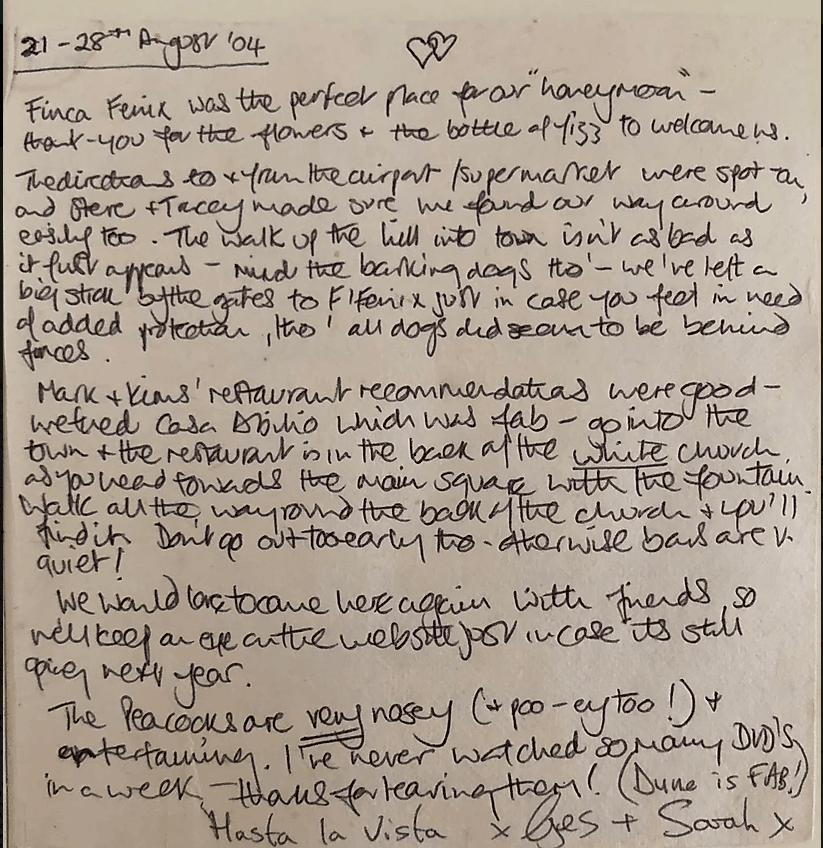 21-28th August '04
Finca Fenix was the perfect place for our "honeymoon" -
thank-you for the flowers + the bottle of fizz to welcome us.
The directions to + from the airport/supermarket were spot on,
and Steve + Tracey made sure we found our way around
easily too. The walk up the hill into town isn't as bad as
it first appears - mind the barking dogs tho' - we've left a
big stick by the gates to F'Fenix just in case you feel in need
of added protection, tho' all dogs did seem to be behind
fences.
Mark + Kims' restaurant recommendations were good -
we tried Casa Abilio which was fab - go into the
town + the restaurant is in the back of the white church,
as you head towards the main square with the fountain.
Walk all the way round the back of the church + you'll
find it. Don't go out too early tho - otherwise bars are v.
quiet!
We would love to come here again with friends, so
we'll keep an eye on the website just in case its still
going next year.
The Peacocks are very nosey (+ poo-ey too!) +
entertaining. I've never watched so many DVD'S
in a week - thanks for leaving them! (Dune is FAB!)
Hasta la Vista x Ges + Sarah x